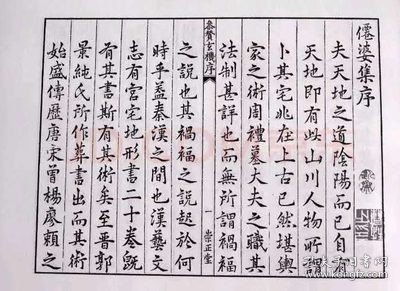 僊婆集序
夫天地之道陰陽而已自有
天地即有此山川人物所謂
卜其宅兆在上古已然堪輿
家之術周禮墓大夫之職其
法制甚詳也而無所謂禍福
參贊玄機序
一
崇正堂
之說也其禍福之說起於何
時乎蓋秦漢之間也漢藝文
志有宮宅地形書二十卷旣
有其書斯有其術矣至晋郭
景純氏所作葬書出而其術
始盛傳歷唐宋曾楊廖賴之